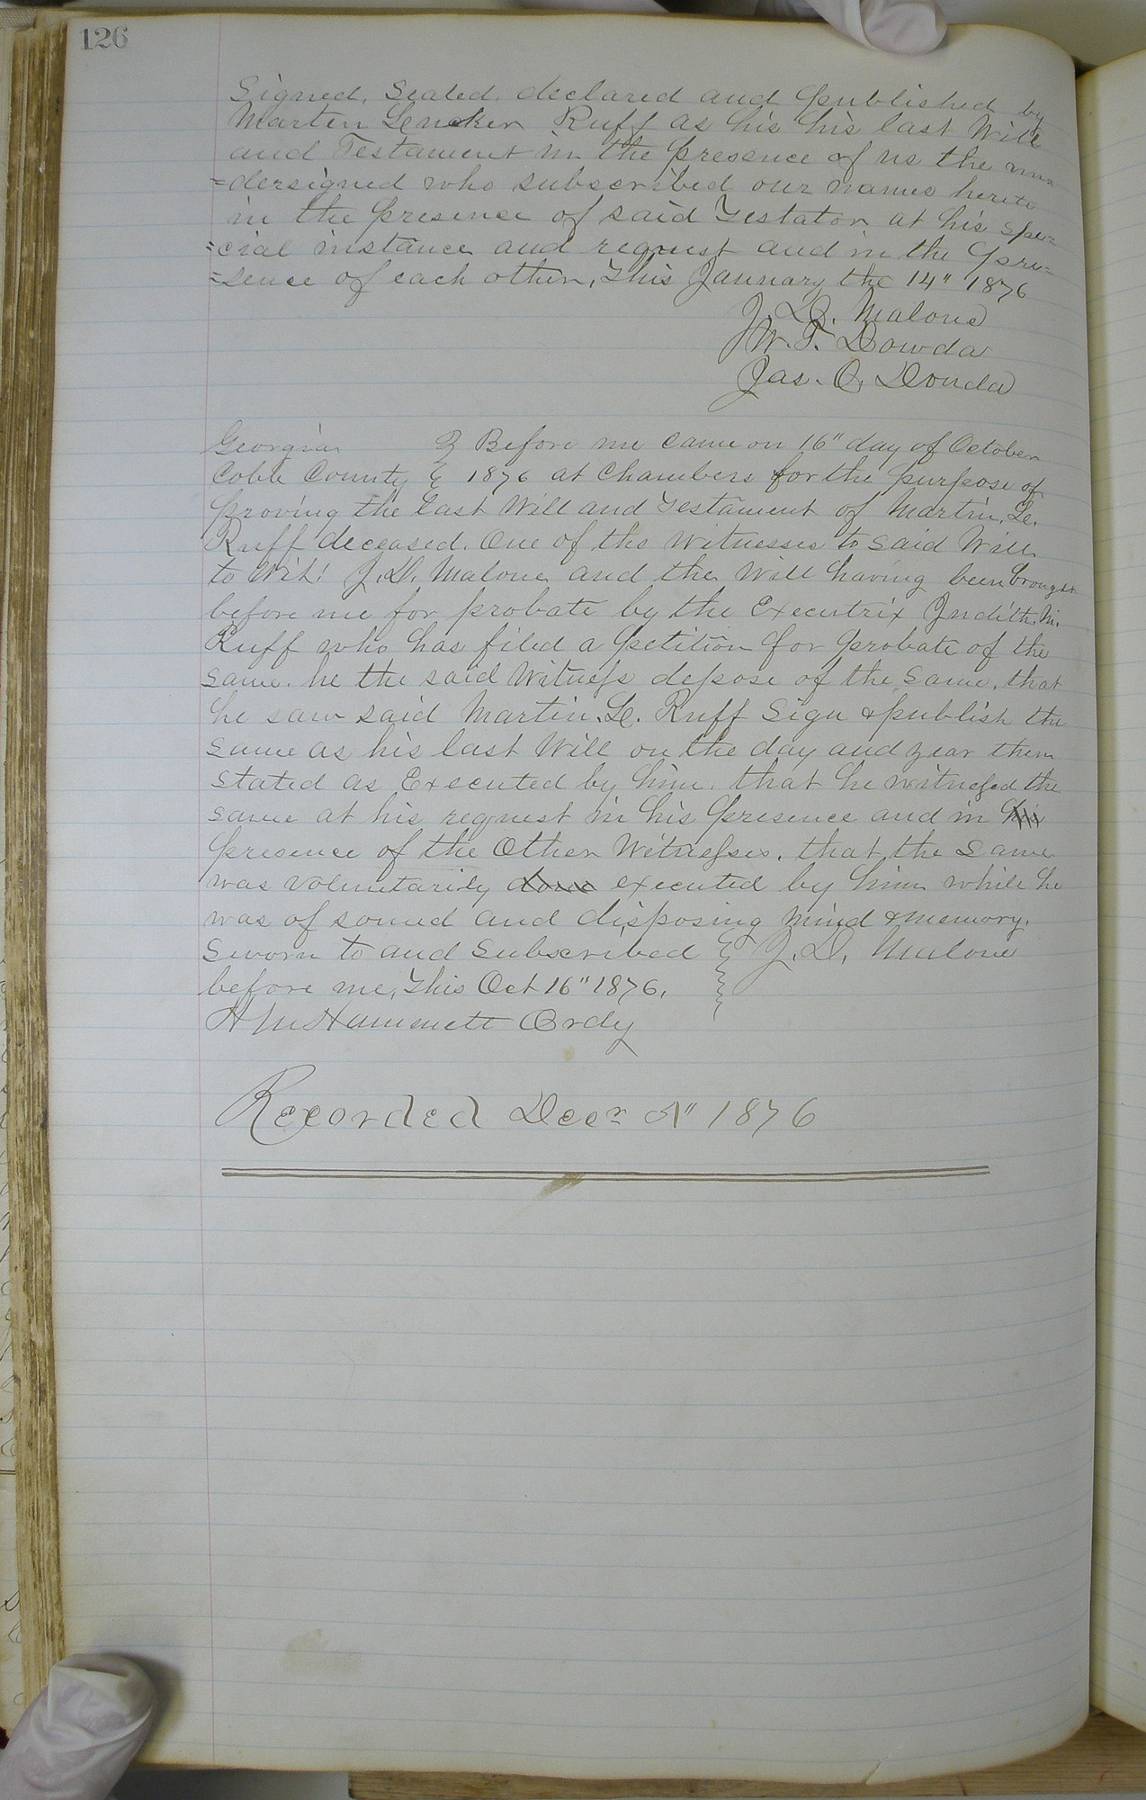 126
Signed, Sealed, declared and published by
Marten Lenoker Ruff as his his last Will
and Testament in the presence of us the un=
=dersigned who subscribed our names hereto
in the presence of said Testator at his spe=
=cial instance and request and in the pre=
=sence of each other, This January the 14" 1876
J. D. Malone
W. T. Dowda
Jas. O. Douda
Georgia } Before me came on 16" day of October
Cobb County } 1876 at Chambers for the purpose of
proving the last Will and Testament of Martin. L.
Ruff deceased. One of the witnesses to said Will
to Wit! J. D. Malone and the Will having been brought
before me for probate by the Executrix Judith. M.
Ruff who has filed a petition for probate of the
same. he the said Witness depose of the same, that
he saw said Martin. L. Ruff Sign & publish the
same as his last Will on the day and year then
stated as Executed by him, that he witnessed the
same at his request in his presence and in his
presence of the Other Witnesses. that the same
was voluntarily done executed by him while he
was of sound and disposing mind & memory.
Sworn to and Subscribed } J. D. Malone
before me, This Oct 16" 1876.
H M Hammett Ordy
Recorded Decr 1876